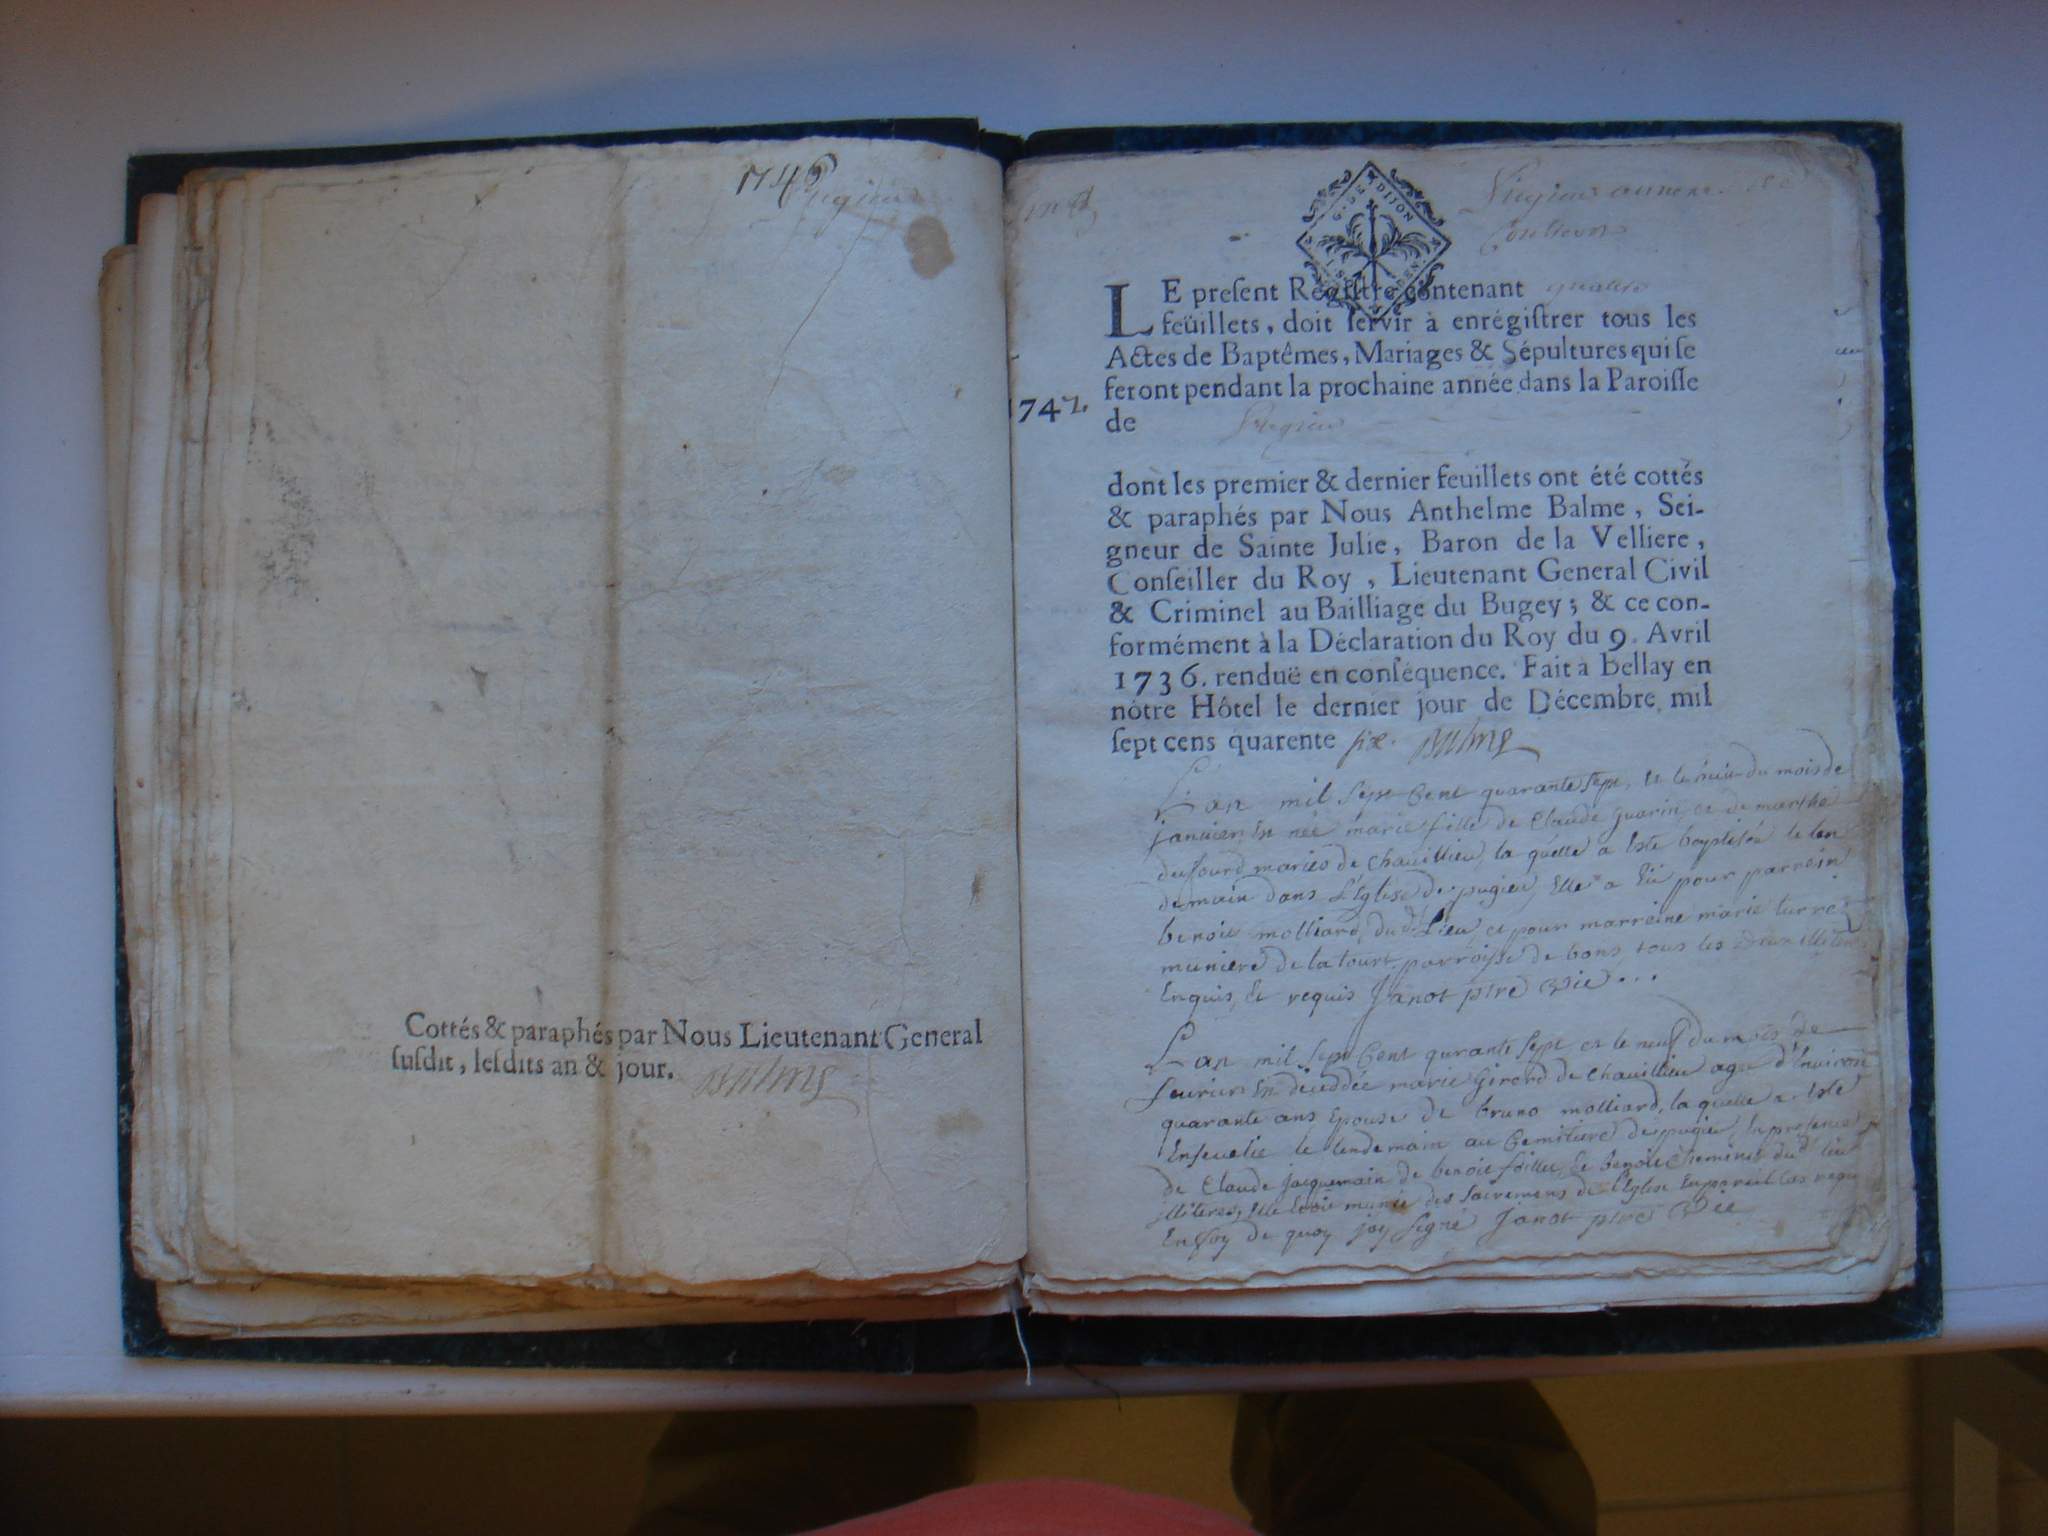 1746
Cottés & paraphés par Nous Lieutenant General
ſuſdit, leſdits an & jour. Balme
G. DE DIJON
1747.
LE preſent Régiſtre contenant quatre
feüillets, doit ſervir à enrégiſtrer tous les
Actes de Baptêmes, Mariages & Sépultures qui ſe
feront pendant la prochaine année dans la Paroiſſe
de Pugieu
dont les premier & dernier feuillets ont été cottés
& paraphés par Nous Anthelme Balme, Sei-
gneur de Sainte Julie, Baron de la Velliere,
Conſeiller du Roy, Lieutenant General Civil
& Criminel au Bailliage du Bugey; & ce con-
formément à la Déclaration du Roy du 9. Avril
1736. renduë en conſéquence. Fait à Bellay en
nôtre Hôtel le dernier jour de Décembre mil
ſept cens quarente six. Balme
L'an mil sept cent quarante sept, et le huit du mois de
janvier est née marie fille de Claude Guarin et de marthe
dufourd mariés de chavillieu, la quelle a esté baptisée le len
demain dans l'Eglise de pugieu, Elle a Eü pour parrein
benoit molliard du d. Lieu et pour marreine marie turrel
muniere de la tour parroisse de bons tous les deux illiteres
Enquis, Et requis Janot ptre vic...
L'an mil sept cent qurante sept et le neuf du mois de
fevrier Est décédée marie Girerd de chavillieu agée d'Environ
quarante ans Epouse de bruno molliard, la quelle a esté
Ensevelie le lendemain au cemitiere de pugieu, En presence
de Claude jacquemain de benoit et benoit cheminet du d. lieu
illiteres, Elle Etoit munie des sacremens de l'Eglise En pareil cas requi
En foy de quoy j'ay signé Janot ptre vic